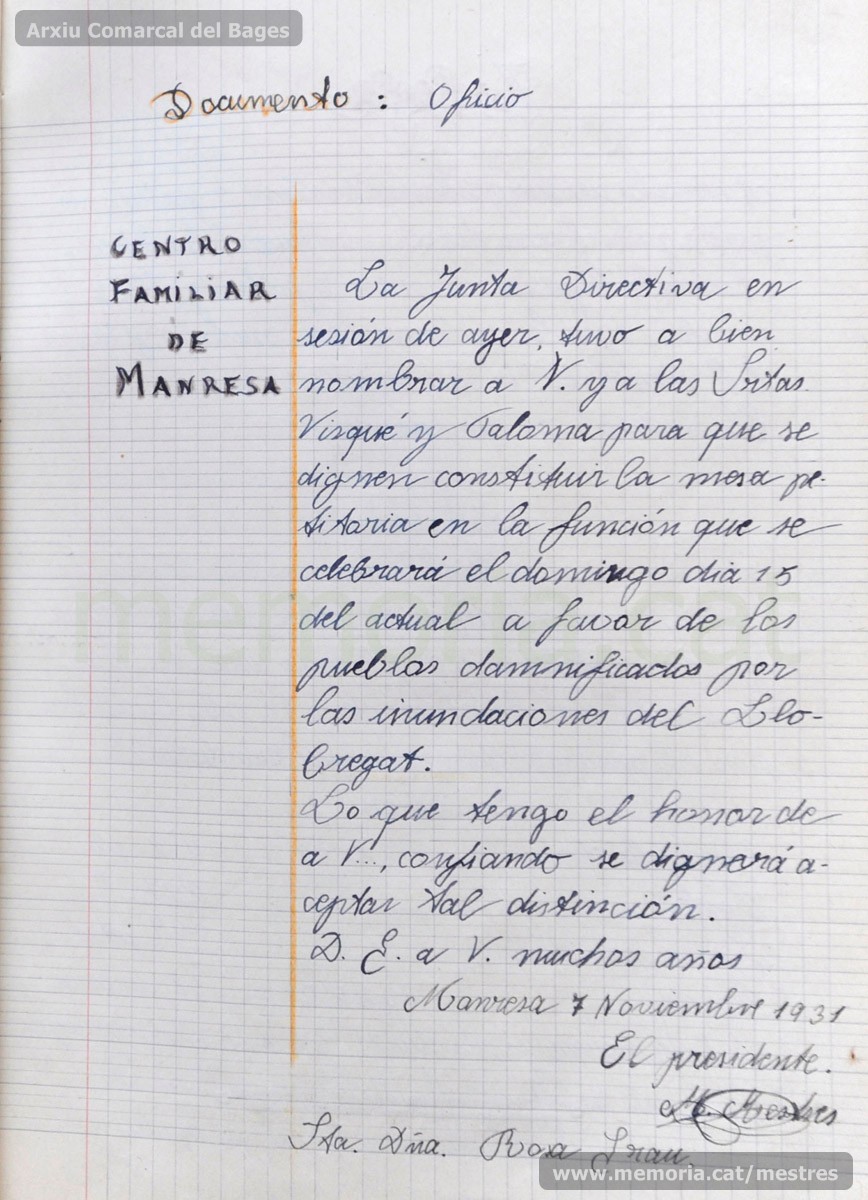 Arxiu Comarcal del Bages
Documento : Oficio
CENTRO
FAMILIAR
DE
MANRESA
La Junta Directiva en
sesión de ayer, tuvo a bien
nombrar a V. y a las Sritas.
Visqué y Paloma para que se
dignen constituir la mesa pe-
titoria en la función que se
celebrará el domingo dia 15
del actual a favor de los
pueblos damnificados por
las inundaciones del Llo-
bregat.
Lo que tengo el honor de
a V..., confiando se dignará a-
ceptar tal distinción.
D. E. a V. muchos años
Manresa 7 Noviembre 1931
El presidente.
M. Mestres
Sta. Dña. Rosa Grau.
memoria.cat
www.memoria.cat/mestres